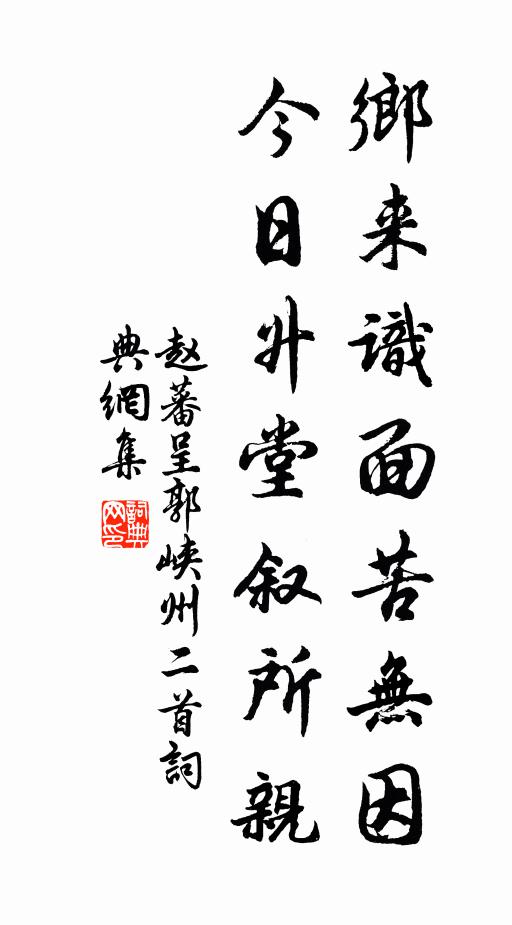 鄉来識面苦無因
今日升堂叙所親
赵蕃呈郭峡州二首詞
典網集
詞典网印